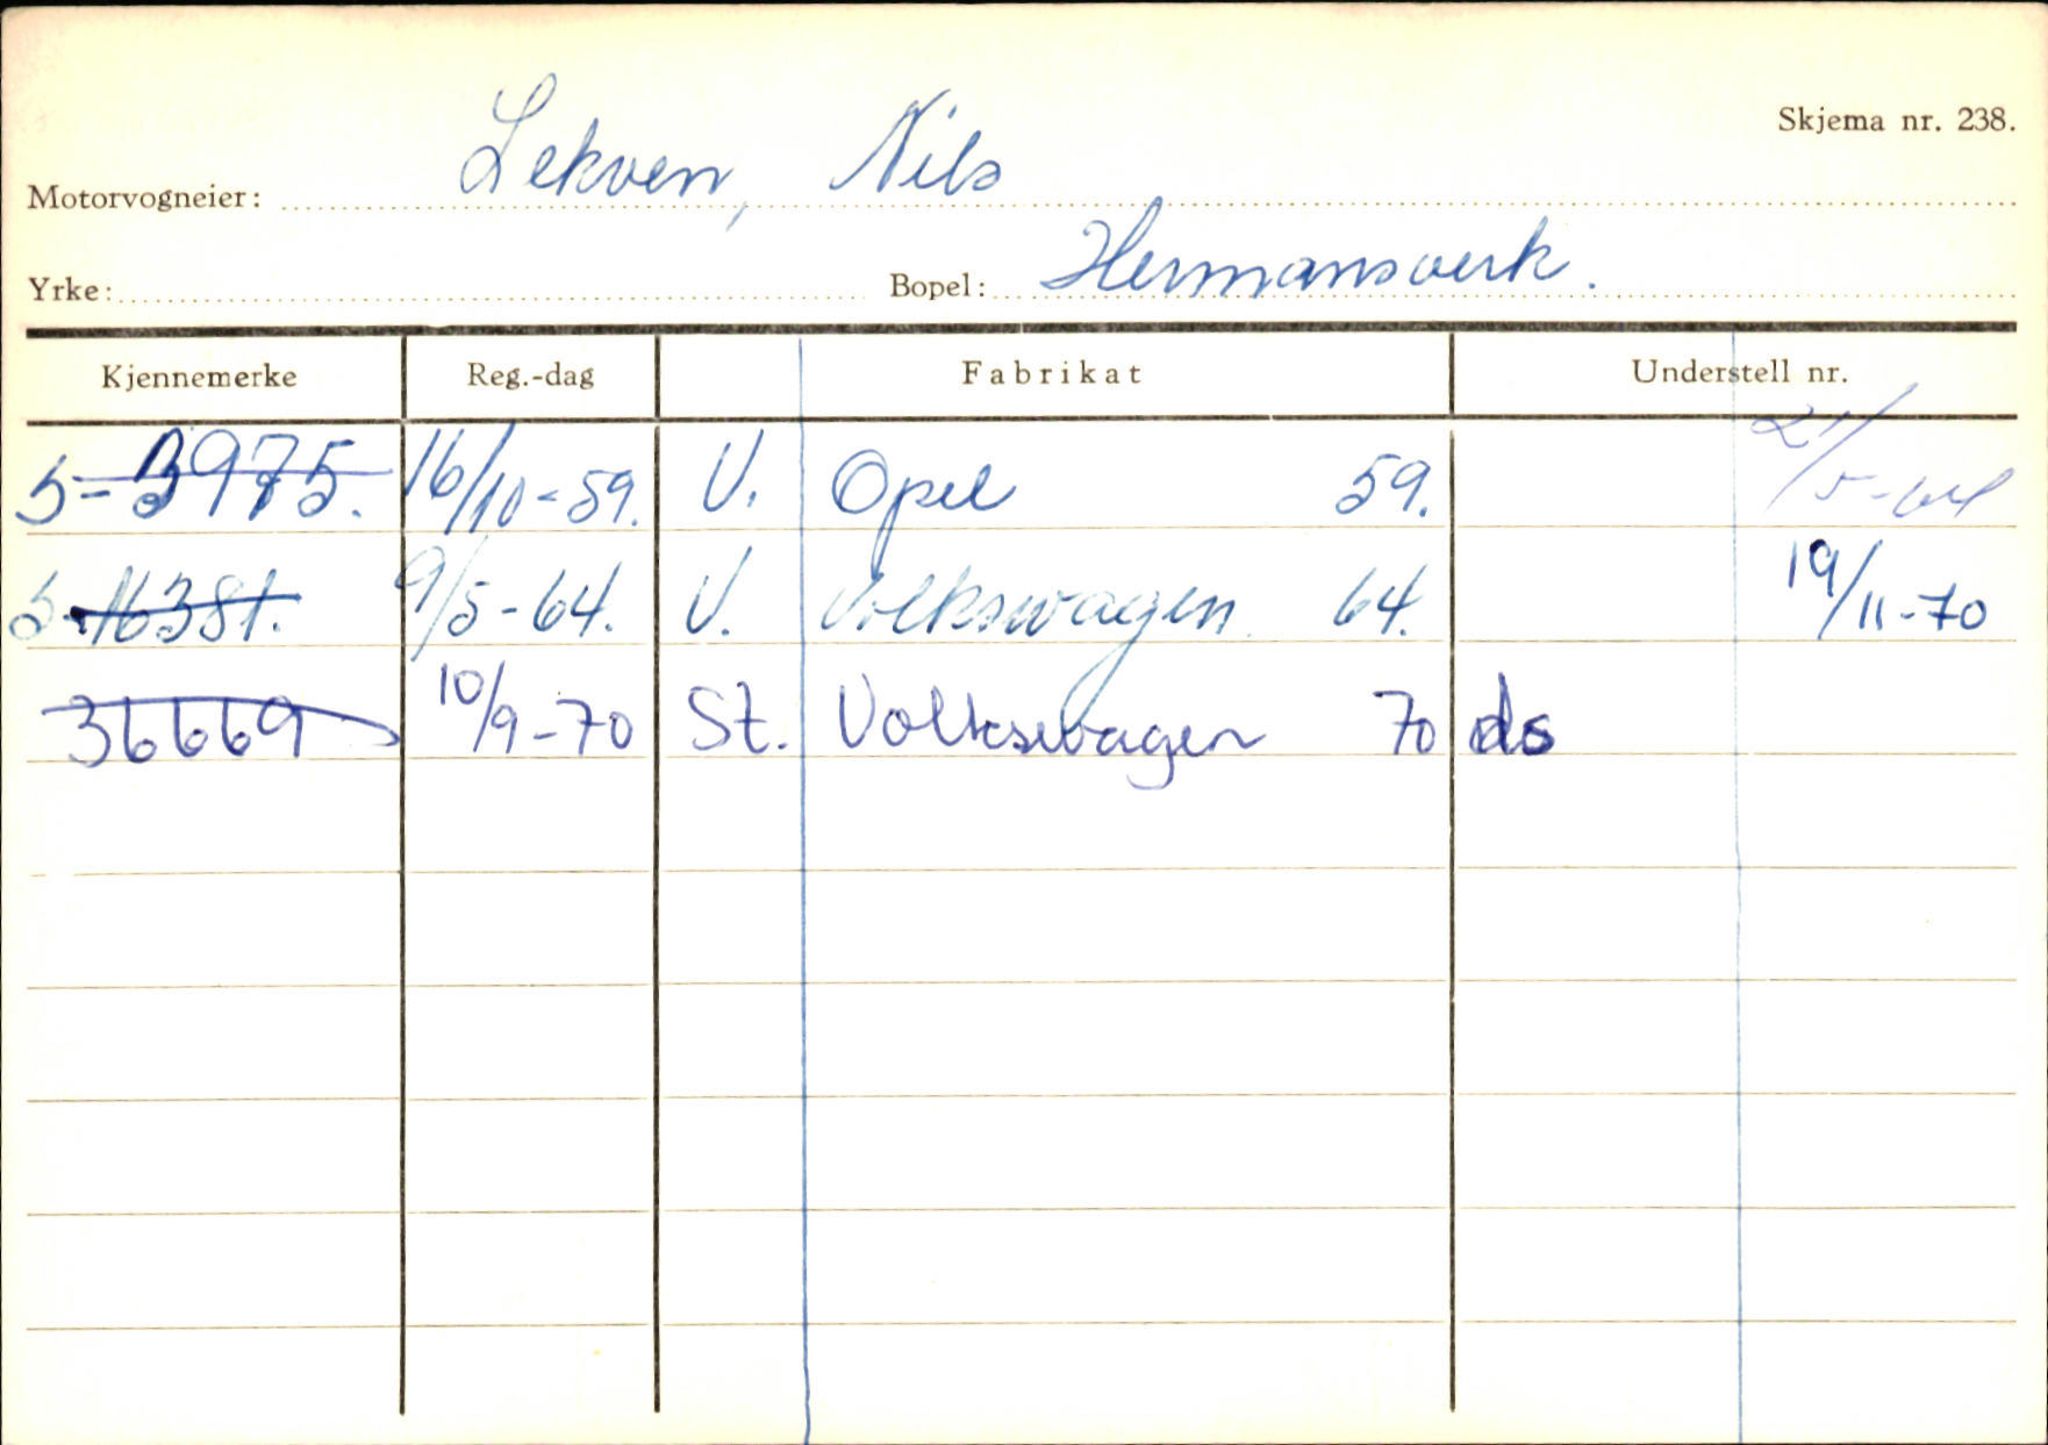 Skjema nr. 238.
Motorvogneier: Lekven, Nils
Yrke: Bopel: Hermansverk.
Kjennemerke Reg.-dag Fabrikat Understell nr.
S-3975. 16/10-59. V. Opel 59. 21/5-64
S-16381. 9/5-64. V. Volkswagen 64. 19/11-70
36669 10/9-70 St. Volkswagen 70 ds